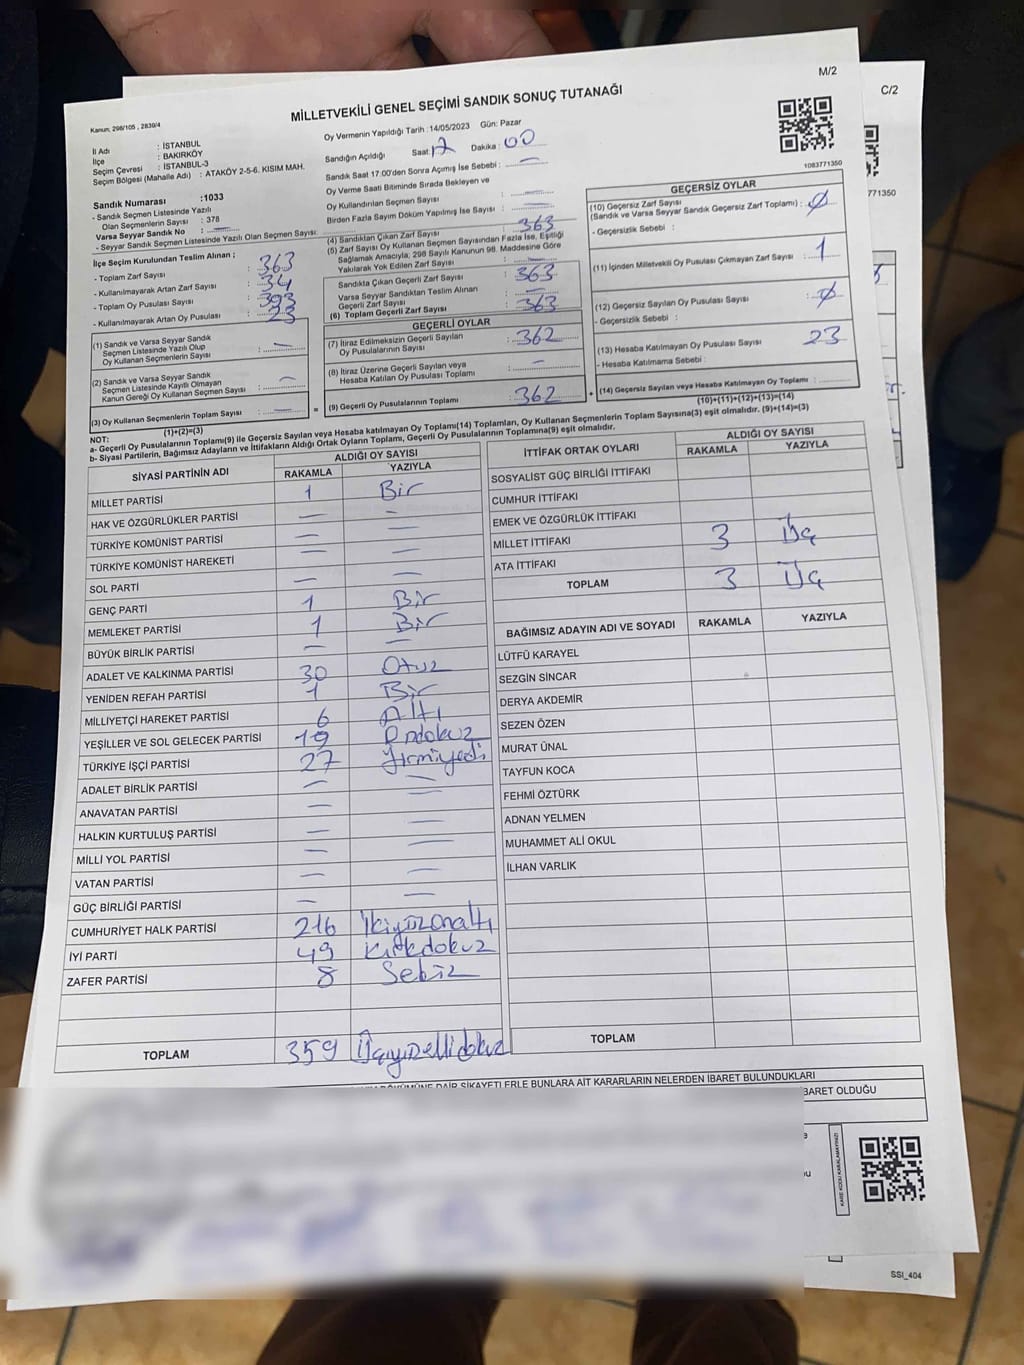 M/2
C/2
MİLLETVEKİLİ GENEL SEÇİMİ SANDIK SONUÇ TUTANAĞI
Kanun: 298/105 , 2839/4
İl Adı : İSTANBUL
İlçe : BAKIRKÖY
Seçim Çevresi : İSTANBUL-3
Seçim Bölgesi (Mahalle Adı) : ATAKÖY 2-5-6. KISIM MAH.
Sandık Numarası :1033
- Sandık Seçmen Listesinde Yazılı
Olan Seçmenlerin Sayısı : 378
Varsa Seyyar Sandık No : —
- Seyyar Sandık Seçmen Listesinde Yazılı Olan Seçmen Sayısı:
İlçe Seçim Kurulundan Teslim Alınan ;
- Toplam Zarf Sayısı : 363
- Kullanılmayarak Artan Zarf Sayısı : 34
- Toplam Oy Pusulası Sayısı : 393
- Kullanılmayarak Artan Oy Pusulası : 23
(1) Sandık ve Varsa Seyyar Sandık
Seçmen Listesinde Yazılı Olup
Oy Kullanan Seçmenlerin Sayısı : —
(2) Sandık ve Varsa Seyyar Sandık
Seçmen Listesinde Kayıtlı Olmayan
Kanun Gereği Oy Kullanan Seçmen Sayısı : —
(3) Oy Kullanan Seçmenlerin Toplam Sayısı : —
(1)+(2)=(3)
Oy Vermenin Yapıldığı Tarih :14/05/2023 Gün: Pazar
Sandığın Açıldığı Saat: 17 Dakika : 00
Sandık Saat 17.00'den Sonra Açılmış İse Sebebi : —
Oy Verme Saati Bitiminde Sırada Bekleyen ve
Oy Kullandırılan Seçmen Sayısı : —
Birden Fazla Sayım Döküm Yapılmış İse Sayısı : —
(4) Sandıktan Çıkan Zarf Sayısı : 363
(5) Zarf Sayısı Oy Kullanan Seçmen Sayısından Fazla İse, Eşitliği
Sağlamak Amacıyla; 298 Sayılı Kanunun 98. Maddesine Göre
Yakılarak Yok Edilen Zarf Sayısı : —
Sandıkta Çıkan Geçerli Zarf Sayısı : 363
Varsa Seyyar Sandıktan Teslim Alınan
Geçerli Zarf Sayısı : —
(6) Toplam Geçerli Zarf Sayısı : 363
GEÇERLİ OYLAR
(7) İtiraz Edilmeksizin Geçerli Sayılan
Oy Pusulalarının Sayısı : 362
(8) İtiraz Üzerine Geçerli Sayılan veya
Hesaba Katılan Oy Pusulası Toplamı : —
= (9) Geçerli Oy Pusulalarının Toplamı : 362
1083771350
771350
GEÇERSİZ OYLAR
(10) Geçersiz Zarf Sayısı
(Sandık ve Varsa Seyyar Sandık Geçersiz Zarf Toplamı) : Ø
- Geçersizlik Sebebi :
(11) İçinden Milletvekili Oy Pusulası Çıkmayan Zarf Sayısı : 1
(12) Geçersiz Sayılan Oy Pusulası Sayısı : Ø
- Geçersizlik Sebebi :
(13) Hesaba Katılmayan Oy Pusulası Sayısı : 23
- Hesaba Katılmama Sebebi :
+ (14) Geçersiz Sayılan veya Hesaba Katılmayan Oy Toplamı :
(10)+(11)+(12)+(13)=(14)
NOT:
a- Geçerli Oy Pusulalarının Toplamı(9) ile Geçersiz Sayılan veya Hesaba katılmayan Oy Toplamı(14) Toplamları, Oy Kullanan Seçmenlerin Toplam Sayısına(3) eşit olmalıdır. (9)+(14)=(3)
b- Siyasi Partilerin, Bağımsız Adayların ve İttifakların Aldığı Ortak Oyların Toplamı, Geçerli Oy Pusulalarının Toplamına(9) eşit olmalıdır.
SİYASİ PARTİNİN ADI ALDIĞI OY SAYISI
RAKAMLA YAZIYLA
MİLLET PARTİSİ 1 Bir
HAK VE ÖZGÜRLÜKLER PARTİSİ — —
TÜRKİYE KOMÜNİST PARTİSİ — —
TÜRKİYE KOMÜNİST HAREKETİ — —
SOL PARTİ — —
GENÇ PARTİ 1 Bir
MEMLEKET PARTİSİ 1 Bir
BÜYÜK BİRLİK PARTİSİ — —
ADALET VE KALKINMA PARTİSİ 30 Otuz
YENİDEN REFAH PARTİSİ 1 Bir
MİLLİYETÇİ HAREKET PARTİSİ 6 Altı
YEŞİLLER VE SOL GELECEK PARTİSİ 19 Ondokuz
TÜRKİYE İŞÇİ PARTİSİ 27 Yirmiyedi
ADALET BİRLİK PARTİSİ — —
ANAVATAN PARTİSİ — —
HALKIN KURTULUŞ PARTİSİ — —
MİLLİ YOL PARTİSİ — —
VATAN PARTİSİ — —
GÜÇ BİRLİĞİ PARTİSİ — —
CUMHURİYET HALK PARTİSİ 216 İkiyüzonaltı
İYİ PARTİ 49 Kırkdokuz
ZAFER PARTİSİ 8 Sekiz
TOPLAM 359 Üçyüzellidokuz
İTTİFAK ORTAK OYLARI ALDIĞI OY SAYISI
RAKAMLA YAZIYLA
SOSYALİST GÜÇ BİRLİĞİ İTTİFAKI
CUMHUR İTTİFAKI
EMEK VE ÖZGÜRLÜK İTTİFAKI
MİLLET İTTİFAKI 3 Üç
ATA İTTİFAKI
TOPLAM 3 Üç
BAĞIMSIZ ADAYIN ADI VE SOYADI RAKAMLA YAZIYLA
LÜTFÜ KARAYEL
SEZGİN SİNCAR
DERYA AKDEMİR
SEZEN ÖZEN
MURAT ÜNAL
TAYFUN KOCA
FEHMİ ÖZTÜRK
ADNAN YELMEN
MUHAMMET ALİ OKUL
İLHAN VARLIK
TOPLAM
DÖKÜMÜNE DAİR ŞİKAYETLERLE BUNLARA AİT KARARLARIN NELERDEN İBARET BULUNDUKLARI
BARET OLDUĞU
KARE KODU KARALAMAYINIZ!
SSİ_404